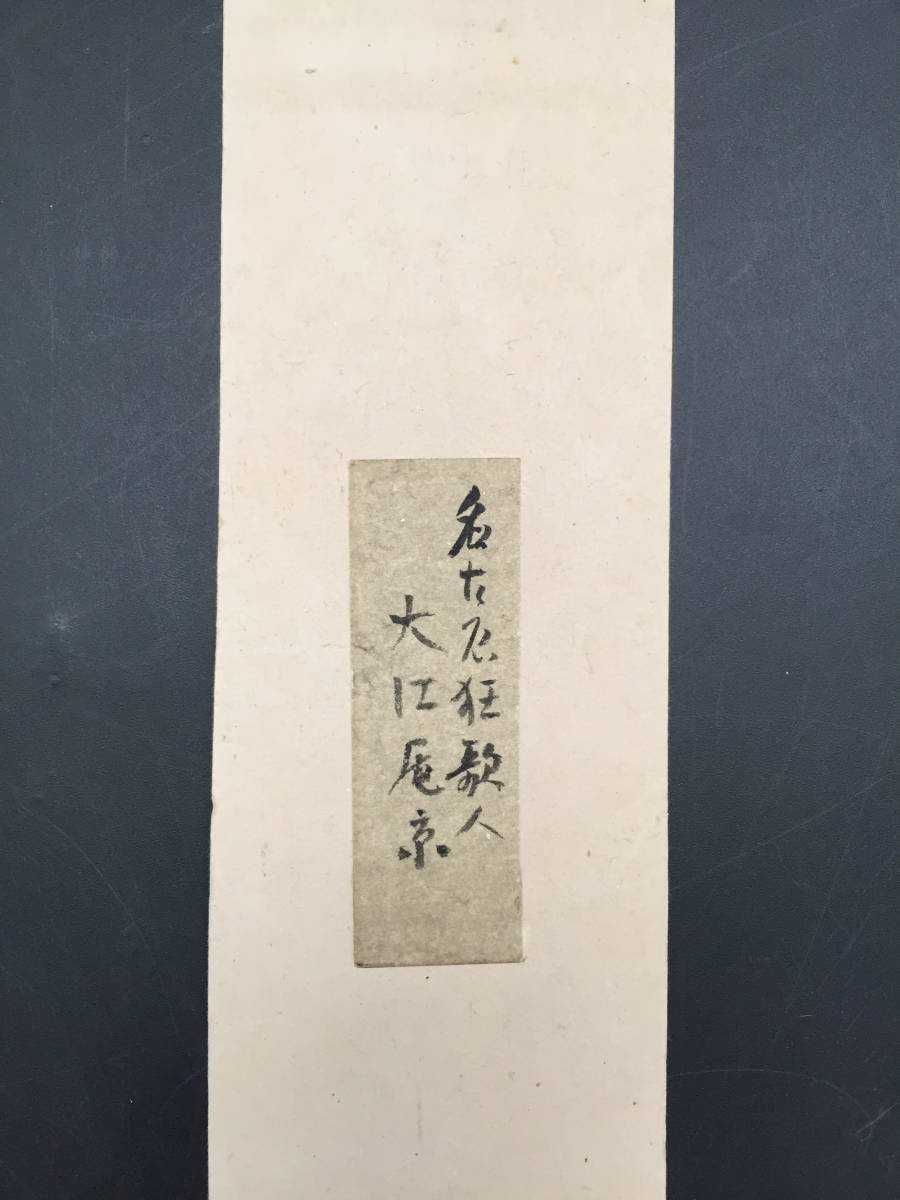 名古屋狂歌人
大江庵京